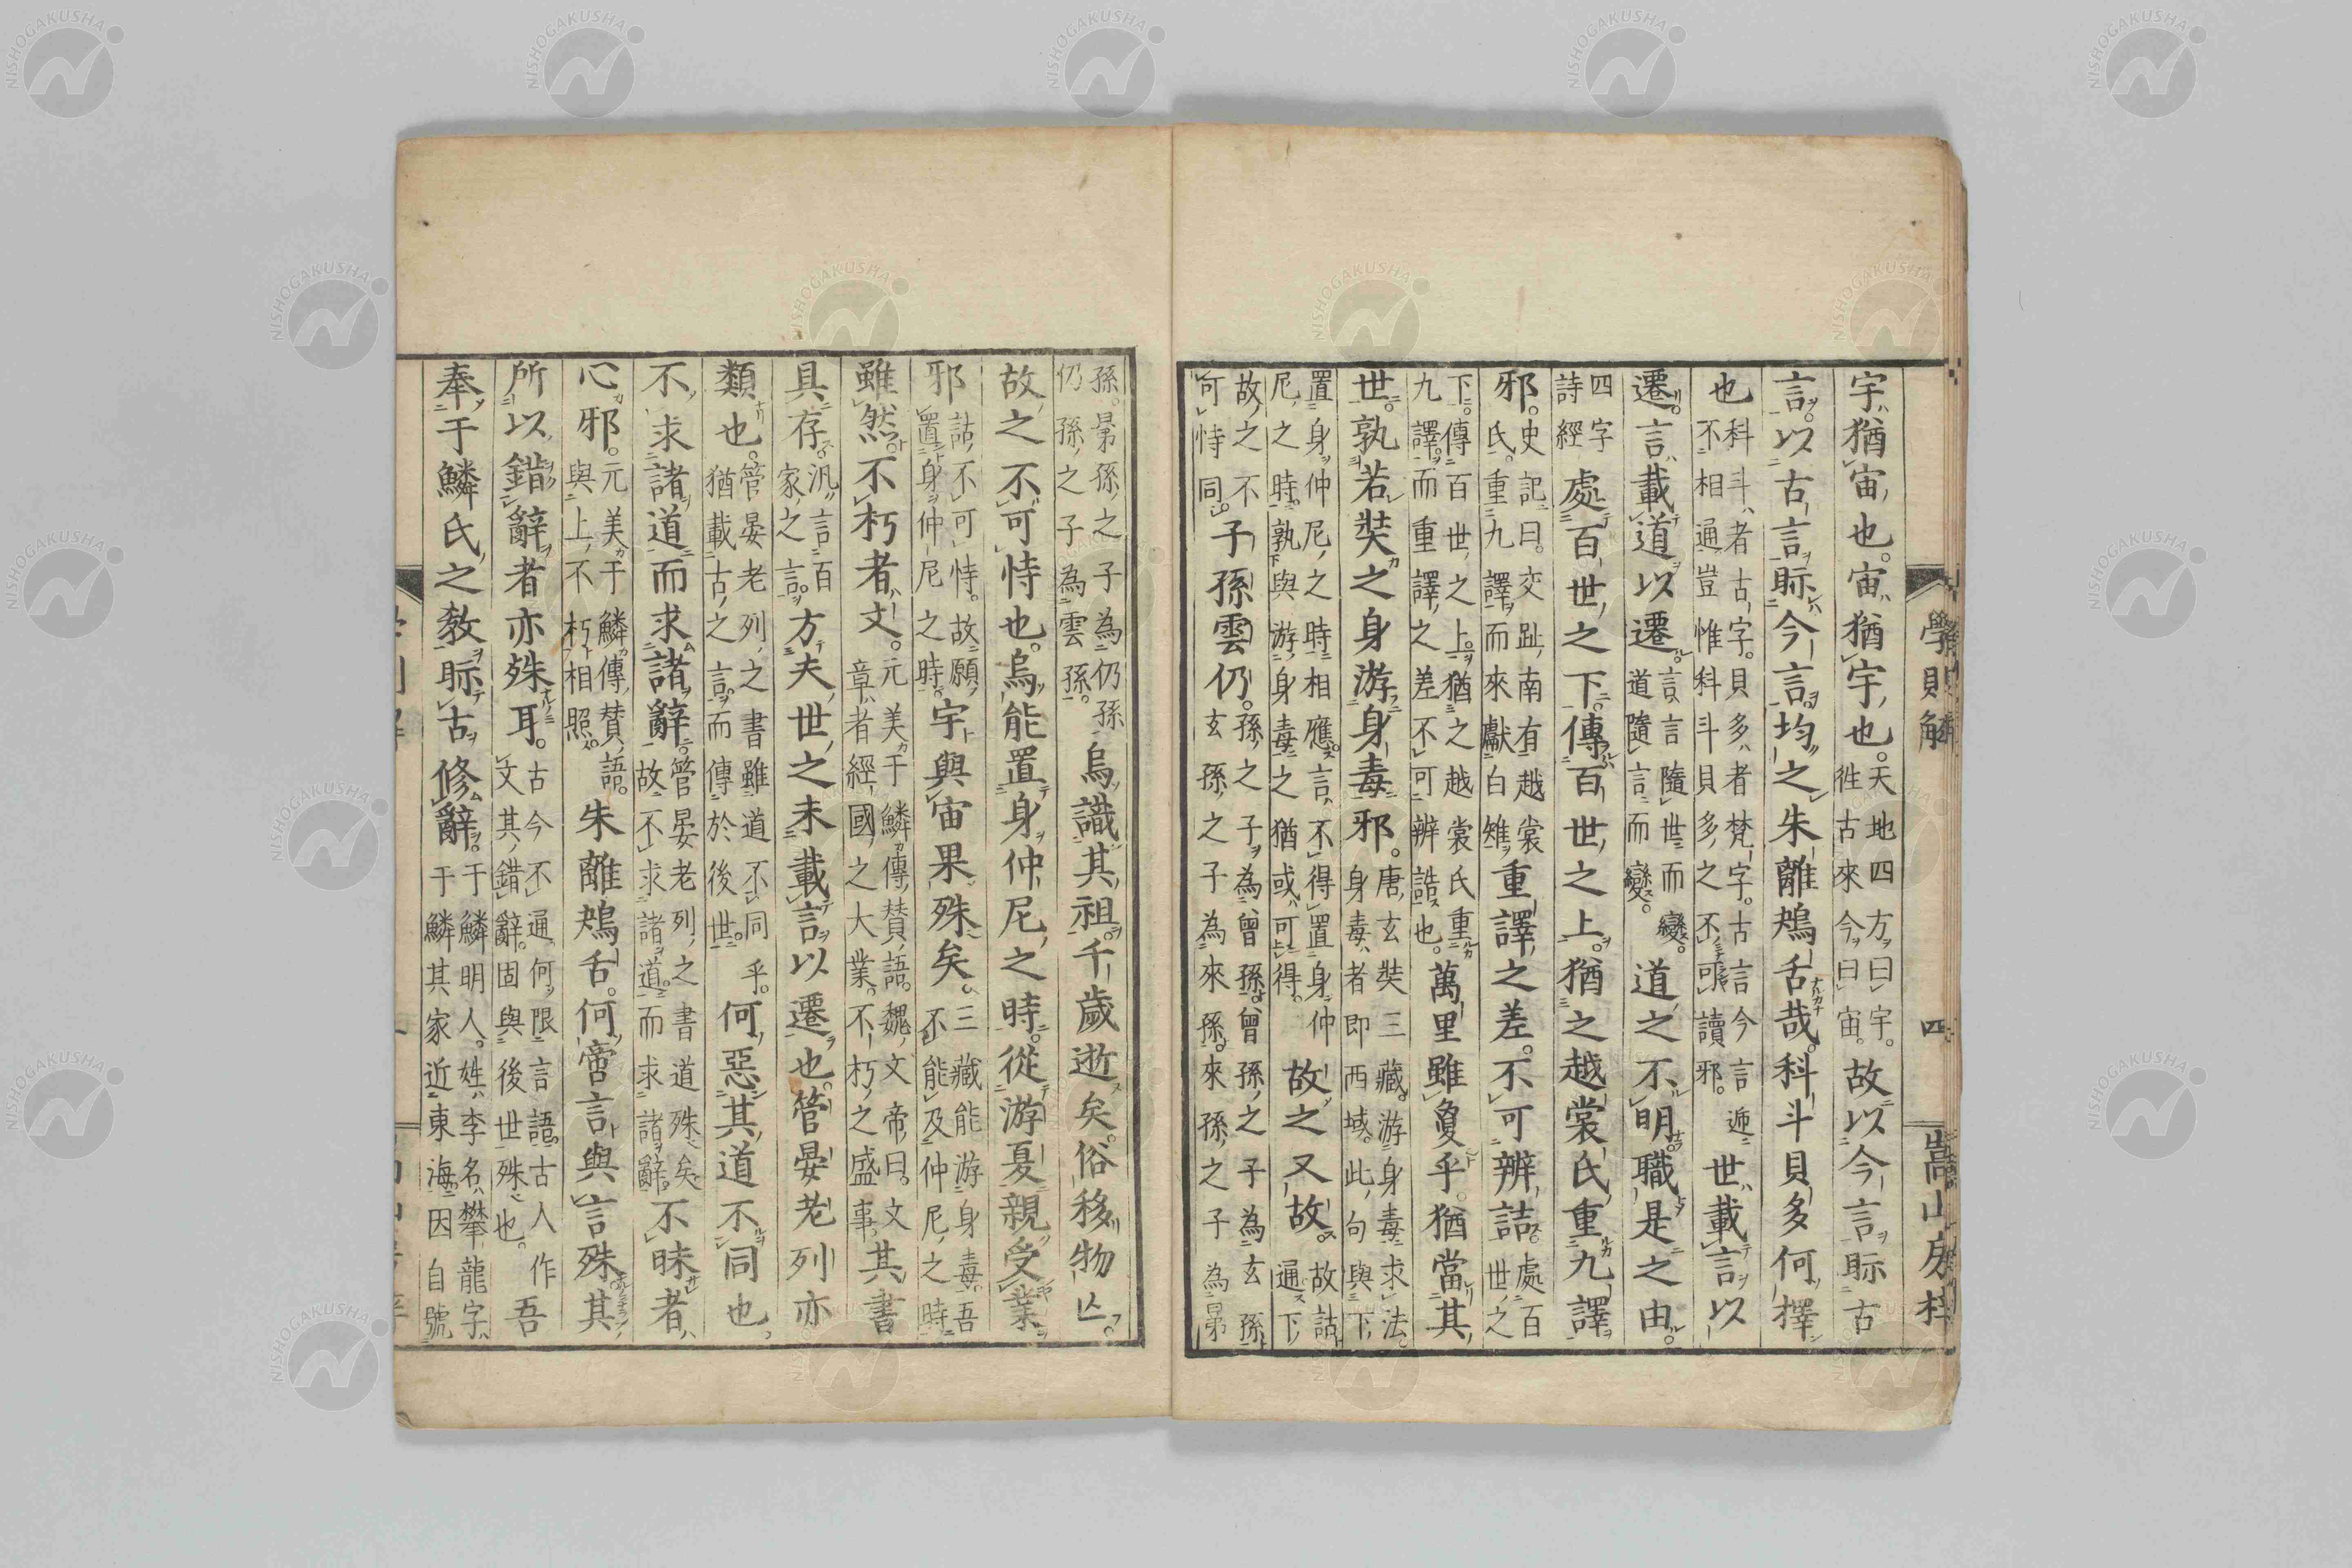 學則解 四 嵩山房梓
宇猶宙也。宙猶宇也。天地四方曰宇。徃古來今曰宙。故以今言眎古
言。以古言眎今言。均之朱離鴂舌哉。科斗貝多何擇
也科斗者古字。貝多者梵字。古言今言遞不相通豈惟科斗貝多之不可讀邪。世載言以
遷。言載道以遷。言言隨世而變。道隨言而變。道之不明職是之由。
四字詩經處百世之下。傳百世之上。猶之越裳氏重九譯
邪。史記曰。交趾南有越裳氏。重九譯而來獻白雉重譯之差。不可辨詰。處百世之
下。傳百世之上。猶之越裳氏重九譯。而重譯之差不可辨詰也。萬里雖敻乎。猶當其
世。孰若奘之身游身毒邪。唐玄奘三藏游身毒求法。身毒者即西域。此句與下
置身仲尼之時相應。言不得置身仲尼之時。孰與游身毒之猶或可得。故之又故。故詁通下
故之不可恃同。子孫雲仍。孫之子為曾孫。曾孫之子為玄孫。玄孫之子為來孫。來孫之子為晜
孫。晜孫之子為仍孫。仍孫之子為雲孫。烏識其祖。千歲逝矣。俗移物亡。
故之不可恃也。烏能置身仲尼之時。從游夏親受業
邪詁不可恃。故願置身仲尼之時。宇與宙果殊矣。三藏能游身毒。吾不能及仲尼之時
雖然不朽者文。元美于鱗傳贊語。魏文帝曰。文章者經國之大業。不朽之盛事其書
具存。汎言百家之言。方夫世之未載言以遷也。管晏老列亦
類也。管晏老列之書雖道不同乎。猶載古之言。而傳於後世。何惡其道不同也
不求諸道而求諸辭。管晏老列之書道殊矣。故不求諸道而求諸辭。不昧者
心邪。元美于鱗傳贊語。與上不朽相照。朱離鴂舌。何啻言與言殊其
所以錯辭者亦殊耳。古今不通何限言語。古人作文其錯辭。固與後世殊也。吾
奉于鱗氏之敎眎古修辭。于鱗明人。姓李名攀龍字于鱗其家近東海因自號